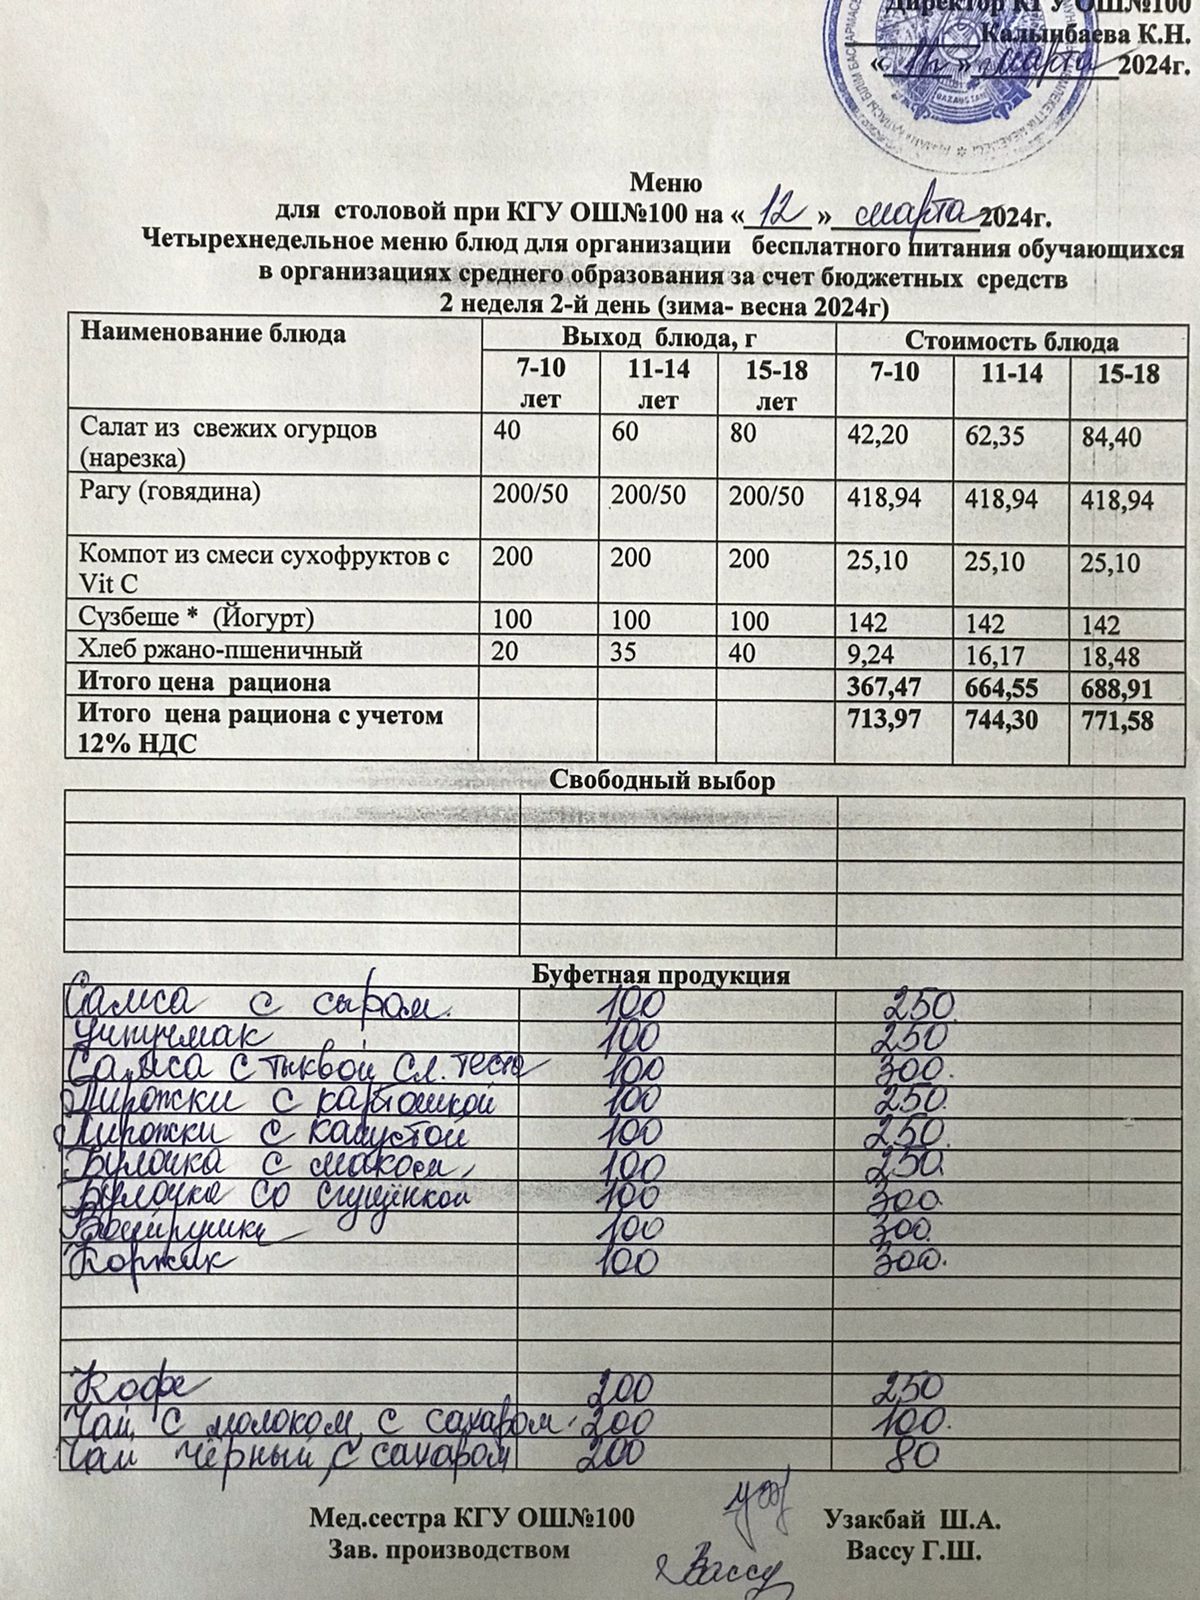 Директор КГУ ОШ№100
Калынбаева К.Н.
« 11 » марта 2024г.
QAZAQSTAN
Меню
для столовой при КГУ ОШ№100 на « 12 » марта 2024г.
Четырехнедельное меню блюд для организации бесплатного питания обучающихся
в организациях среднего образования за счет бюджетных средств
2 неделя 2-й день (зима- весна 2024г)
Наименование блюда Выход блюда, г Стоимость блюда
7-10 лет 11-14 лет 15-18 лет 7-10 11-14 15-18
Салат из свежих огурцов (нарезка) 40 60 80 42,20 62,35 84,40
Рагу (говядина) 200/50 200/50 200/50 418,94 418,94 418,94
Компот из смеси сухофруктов с Vit C 200 200 200 25,10 25,10 25,10
Сүзбеше * (Йогурт) 100 100 100 142 142 142
Хлеб ржано-пшеничный 20 35 40 9,24 16,17 18,48
Итого цена рациона 367,47 664,55 688,91
Итого цена рациона с учетом 12% НДС 713,97 744,30 771,58
Свободный выбор
Буфетная продукция
Самса с сыром. 100 250.
Учпучмак 100 250
Самса с тыквой сл. теста 100 300.
Пирожки с картошкой 100 250.
Пирожки с капустой 100 250.
Булочка с маком 100 250.
Булочка со сгущёнкой 100 300.
100 300.
Коржик 100 300.
Кофе 200 250
Чай с молоком, с сахаром. 200 100.
Чай чёрный, с сахаром 200 80
Мед.сестра КГУ ОШ№100 Узакбай Ш.А.
Зав. производством Вассу Вассу Г.Ш.